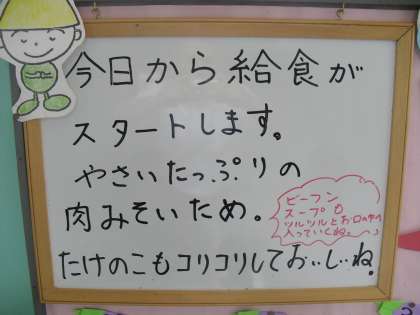 今日から給食が
スタートします。
やさいたっぷりの
肉みそいため。
ビーフン
スープも
ツルツルとお口の中へ
入っていくね。
たけのこもコリコリしておいしいね。